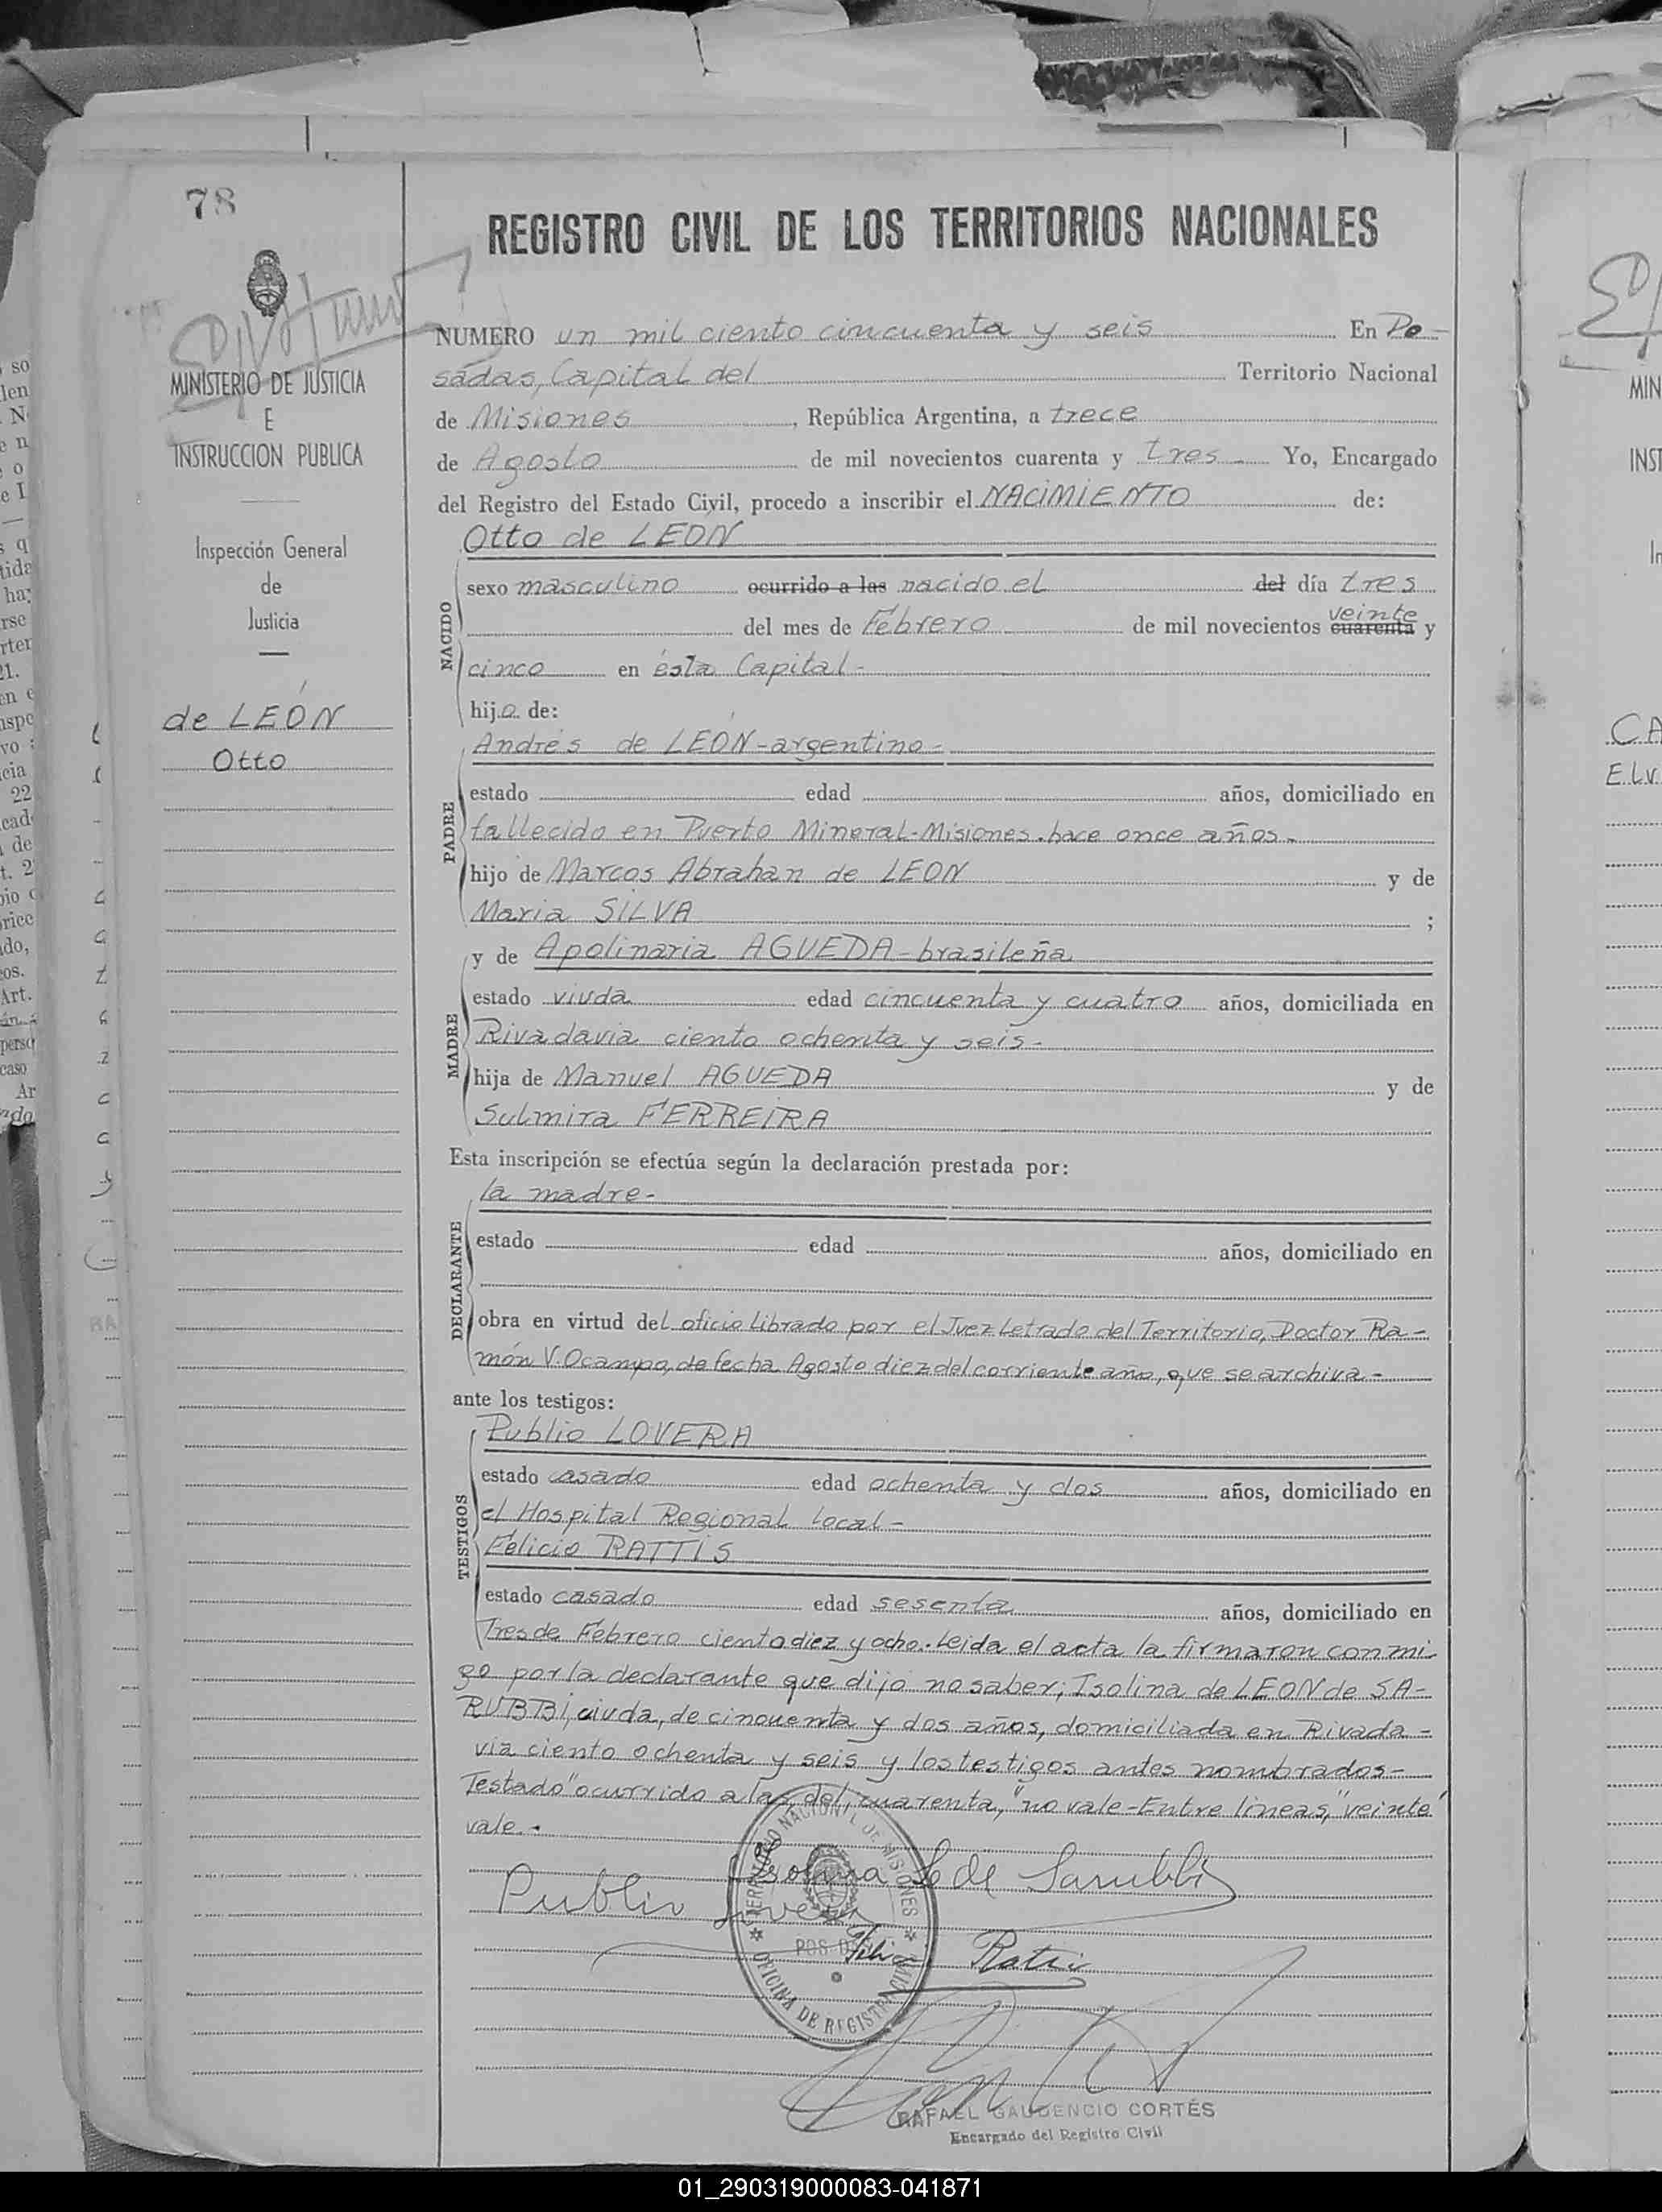 78
REGISTRO CIVIL DE LOS TERRITORIOS NACIONALES
MINISTERIO DE JUSTICIA
E
INSTRUCCION PUBLICA
Inspección General
de
Justicia
de LEÓN
Otto
NUMERO un mil ciento cincuenta y seis En Po-
sadas, Capital del Territorio Nacional
de Misiones, República Argentina, a trece
de Agosto de mil novecientos cuarenta y tres- Yo, Encargado
del Registro del Estado Civil, procedo a inscribir el NACIMIENTO de:
Otto de LEON
NACIDO
sexo masculino ocurrido a las nacido el del día tres
veinte
del mes de Febrero de mil novecientos cuarenta y
cinco en ésta Capital-
hijo de:
PADRE
Andrés de LEÓN-argentino-
estado edad años, domiciliado en
fallecido en Puerto Mineral-Misiones.hace once años-
hijo de Marcos Abrahan de LEON y de
Maria SILVA ;
MADRE
y de Apolinaria AGUEDA-brasileña
estado viuda edad cincuenta y cuatro años, domiciliada en
Rivadavia ciento ochenta y seis-
hija de Manuel AGUEDA y de
Sulmira FERREIRA
Esta inscripción se efectúa según la declaración prestada por:
DECLARANTE
la madre-
estado edad años, domiciliado en
obra en virtud del oficio librado por el Juez Letrado del Territorio, Doctor Ra-
món V. Ocampo, de fecha Agosto diez del corriente año, que se archiva-
ante los testigos:
TESTIGOS
Publio LOVERA
estado casado edad ochenta y dos años, domiciliado en
el Hospital Regional local-
Felicio RATTIS
estado casado edad sesenta años, domiciliado en
Tres de Febrero ciento diez y ocho. Leida el acta la firmaron conmi-
go por la declarante que dijo no saber; Isolina de LEON de SA-
RUBBI, viuda, de cincuenta y dos años, domiciliada en Rivada-
via ciento ochenta y seis y los testigos antes nombrados-
Testado "ocurrido a las, del, cuarenta," no vale-Entre lineas, "veinte"
vale.-
Isolina L de Sarubbi
Publio Lovera
TERRITORIO NACIONAL DE MISIONES
POSADAS
OFICINA DE REGISTRO CIVIL
Ratis
RAFAEL GAUDENCIO CORTÉS
Encargado del Registro Civil
01_290319000083-041871